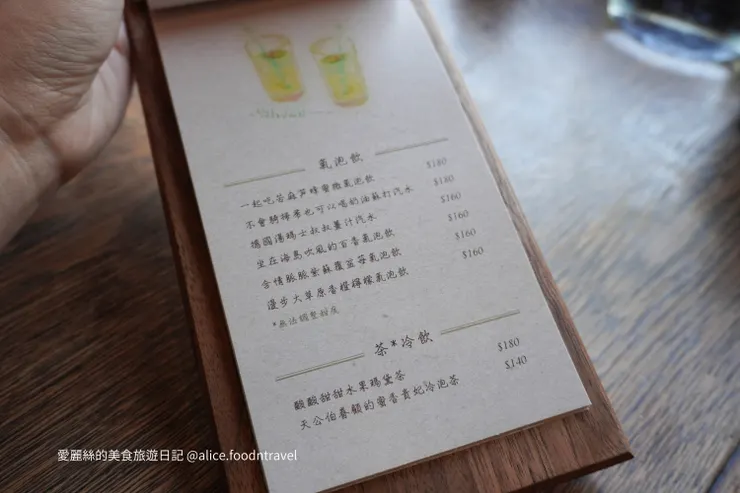 氣泡飲
一起吃苦麻芛蜂蜜檸氣泡飲 $180
不會騎掃帚也可以喝的油蘇打汽水 $180
德國湯瑪士叔叔薑汁汽水 $160
坐在海島吹風的百香氣泡飲 $160
含情脈脈紫蘇覆盆莓氣泡飲 $160
漫步大草原香橙檸檬氣泡飲 $160
*無法調整甜度
茶*冷飲
酸酸甜甜水果瑪黛茶 $180
天公伯眷顧的蜜香貴妃冷泡茶 $140
愛麗絲的美食旅遊日記 @alice.foodntravel